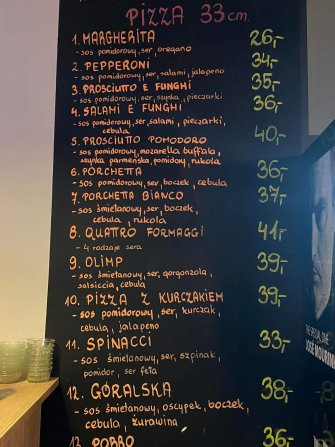 PIZZA 33 cm.
1. MARGHERITA 26,-
- sos pomidorowy, ser, oregano
2. PEPPERONI 34,-
- sos pomidorowy, ser, salami, jalapeno
3. PROSCIUTTO E FUNGHI 35,-
- sos pomidorowy, ser, szynka, pieczarki
4. SALAMI E FUNGHI 36,-
- sos pomidorowy, ser, salami, pieczarki,
cebula
5. PROSCIUTTO POMODORO 40,-
- sos pomidorowy, mozarella buffala,
szynka parmeńska, pomidory, rukola
6. PORCHETTA 36,-
- sos pomidorowy, ser, boczek, cebula
7. PORCHETTA BIANCO 37,-
- sos śmietanowy, ser, boczek,
cebula, rukola
8. QUATTRO FORMAGGI 41,-
- 4 rodzaje sera
9. OLIMP 39,-
- sos śmietanowy, ser, gorgonzola,
salsiccia, cebula
10. PIZZA Z KURCZAKIEM 39,-
- sos pomidorowy, ser, kurczak,
cebula, jalapeno
11. SPINACCI 33,-
- sos śmietanowy, ser, szpinak,
pomidor, ser feta
12. GÓRALSKA 38,-
- sos śmietanowy, oscypek, boczek,
cebula, żurawina
36,-
THE SPECIAL ONE